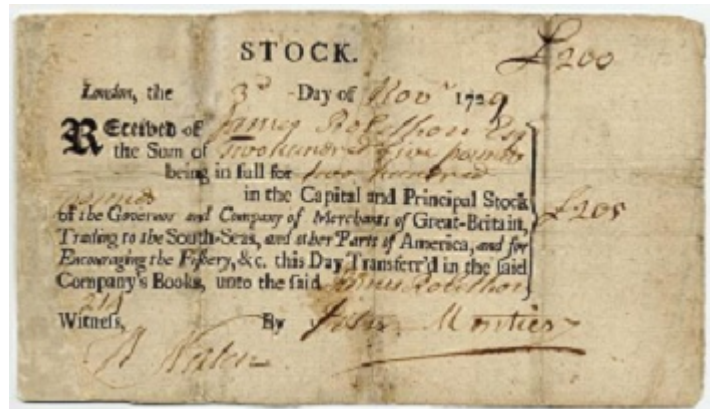 STOCK.
£200
London, the 3d Day of Novr 1729
Received of James Robethon Esq
the Sum of two hundred five pounds
being in full for two hundred
pounds in the Capital and Principal Stock
of the Governor and Company of Merchants of Great-Britain, £205
Trading to the South-Seas, and other Parts of America, and for
Encouraging the Fishery, &c. this Day Transferr'd in the said
Company's Books, unto the said James Robethon
Witness, By John